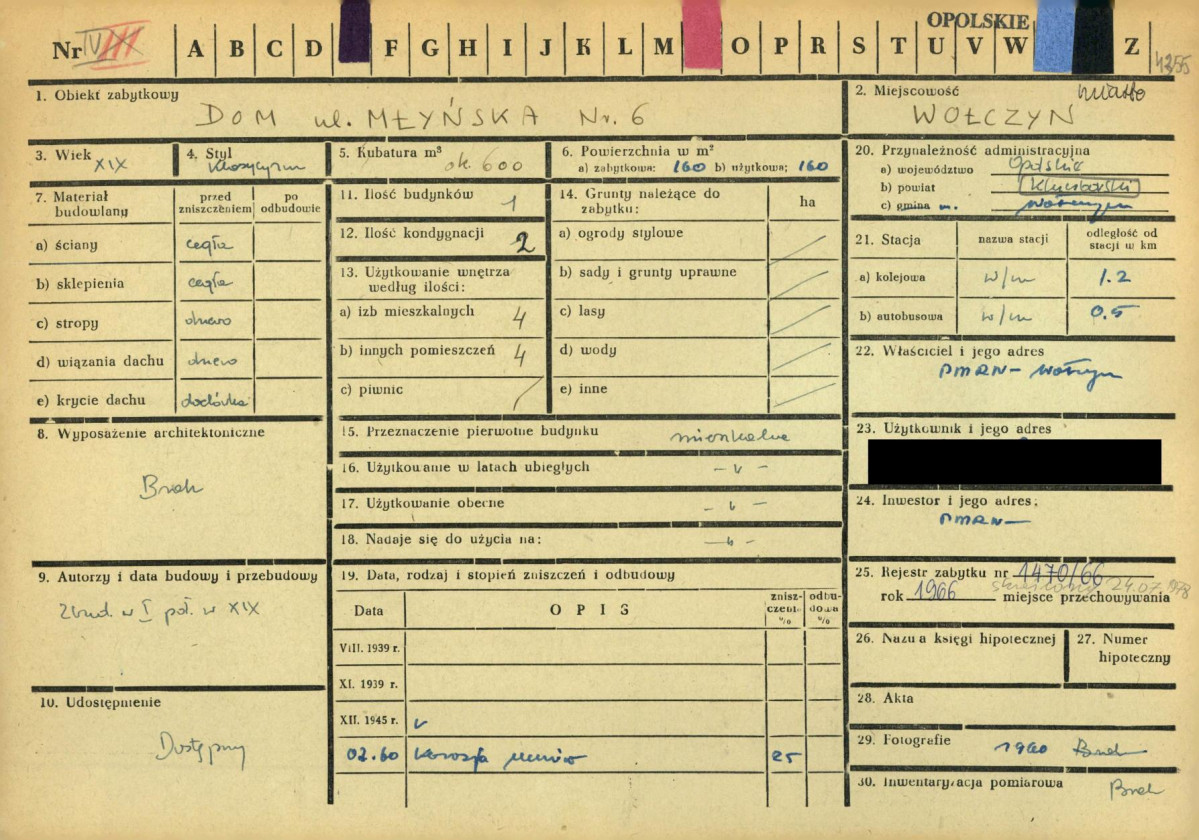 OPOLSKIE
Nr IV A B C D F G H I J K L M O P R S T U V W Z
4255
1. Obiekt zabytkowy
DOM ul. MŁYŃSKA Nr. 6
2. Miejscowość miasto
WOŁCZYN
3. Wiek XIX
4. Styl Klasycyzm
5. Kubatura m³ ok. 600
6. Powierzchnia w m²
a) zabytkowa: 160 b) użytkowa: 160
7. Materiał budowlany
przed zniszczeniem
po odbudowie
a) ściany cegła
b) sklepienia cegła
c) stropy drewo
d) wiązania dachu drewo
e) krycie dachu dachówka
8. Wyposażenie architektoniczne
Brak
9. Autorzy i data budowy i przebudowy
Zbud. w I poł. w XIX
10. Udostępnienie
Dostępny
11. Ilość budynków 1
12. Ilość kondygnacji 2
13. Użytkowanie wnętrza według ilości:
a) izb mieszkalnych 4
b) innych pomieszczeń 4
c) piwnic /
14. Grunty należące do zabytku:
ha
a) ogrody stylowe
b) sady i grunty uprawne
c) lasy
d) wody
e) inne
15. Przeznaczenie pierwotne budynku mieszkalne
16. Użytkowanie w latach ubiegłych – „ –
17. Użytkowanie obecne – „ –
18. Nadaje się do użycia na: – „ –
19. Data, rodzaj i stopień zniszczeń i odbudowy
Data
OPIS
zniszczenie %
odbudowa %
VIII. 1939 r.
XI. 1939 r.
XII. 1945 r.
02.60 Korozja murów 25
20. Przynależność administracyjna
a) województwo Opolskie
b) powiat Kluczborski
c) gmina m. Wołczyn
21. Stacja
nazwa stacji
odległość od stacji w km
a) kolejowa w/m 1.2
b) autobusowa w/m 0.5
22. Właściciel i jego adres
PMRN – Wołczyn
23. Użytkownik i jego adres
24. Inwestor i jego adres:
PMRN –
25. Rejestr zabytku nr 1470/66
skreślony 24.07.1978
rok 1966 miejsce przechowywania
26. Nazwa księgi hipotecznej
27. Numer hipoteczny
28. Akta
29. Fotografie 1960 Brak
30. Inwentaryzacja pomiarowa Brak